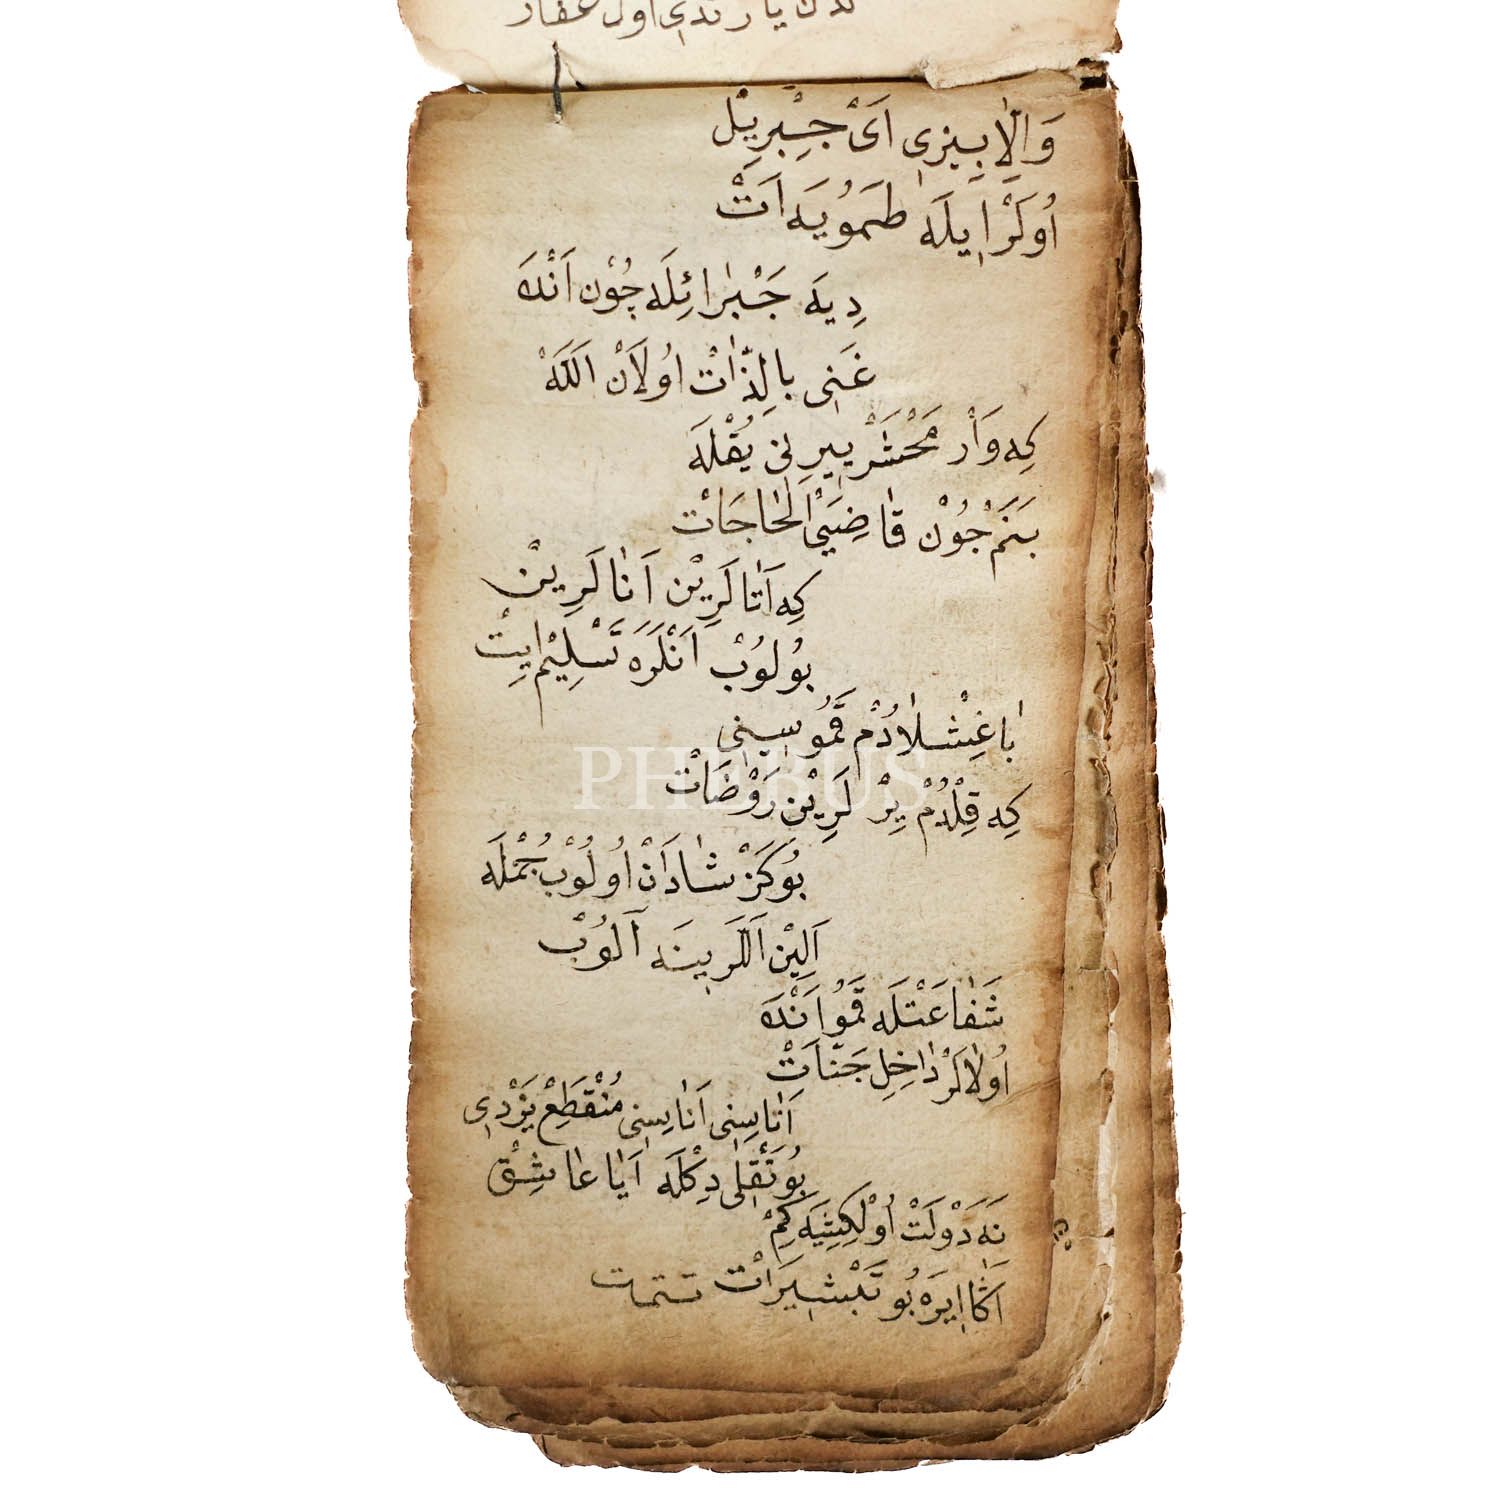 لدن یارتدی اول غفار
وَاِلَّا بِيزِی اَیْ جِبْرِیْل
اُوكَرْ اِیلَه طَمُویَه اَتْ
دِیَه جَبْرَائِلَه چُوْن اَنْدَه
غَنِی بِالذَّاتْ اُولَانْ اَللَّهْ
كِه وَارْ مَحْشَرْ یِیرِنِی یُقْلَه
بَنَمْ چُوْنْ قَاضِیَیْ الْحَاجَاتْ
كِه اَتَا لَرِیْن اَنَا لَرِیْن
بُولُوبْ اَنْلَرَه تَسْلِیْم اِیتْ
بَاغِشْلَادُمْ قَمُوسِنِی
كِه قِلْدُمْ یِرْ لَرِیْن رَوْضَاتْ
بُوكَزْ شَادَانْ اُولُوْبْ جُمْلَه
اَلِیْن اَللَرِینَه آلُوْبْ
شَفَاعَتْلَه قَمُو اَنْدَه
اُولَالَرْ دَاخِلِ جَنَّاتْ
اَتَاسِنِی اَنَاسِنِی مُنْقَطِعْ یَزْدِی
بُو نَقْلِی دِكْلَه اَیَا عَاشِقْ
نَه دَوْلَتْ اُوْل كِشِیَه كِمْ
اَكَا اِیرَه بُو تَبْشِیرَاتْ تمت
PHEBUS